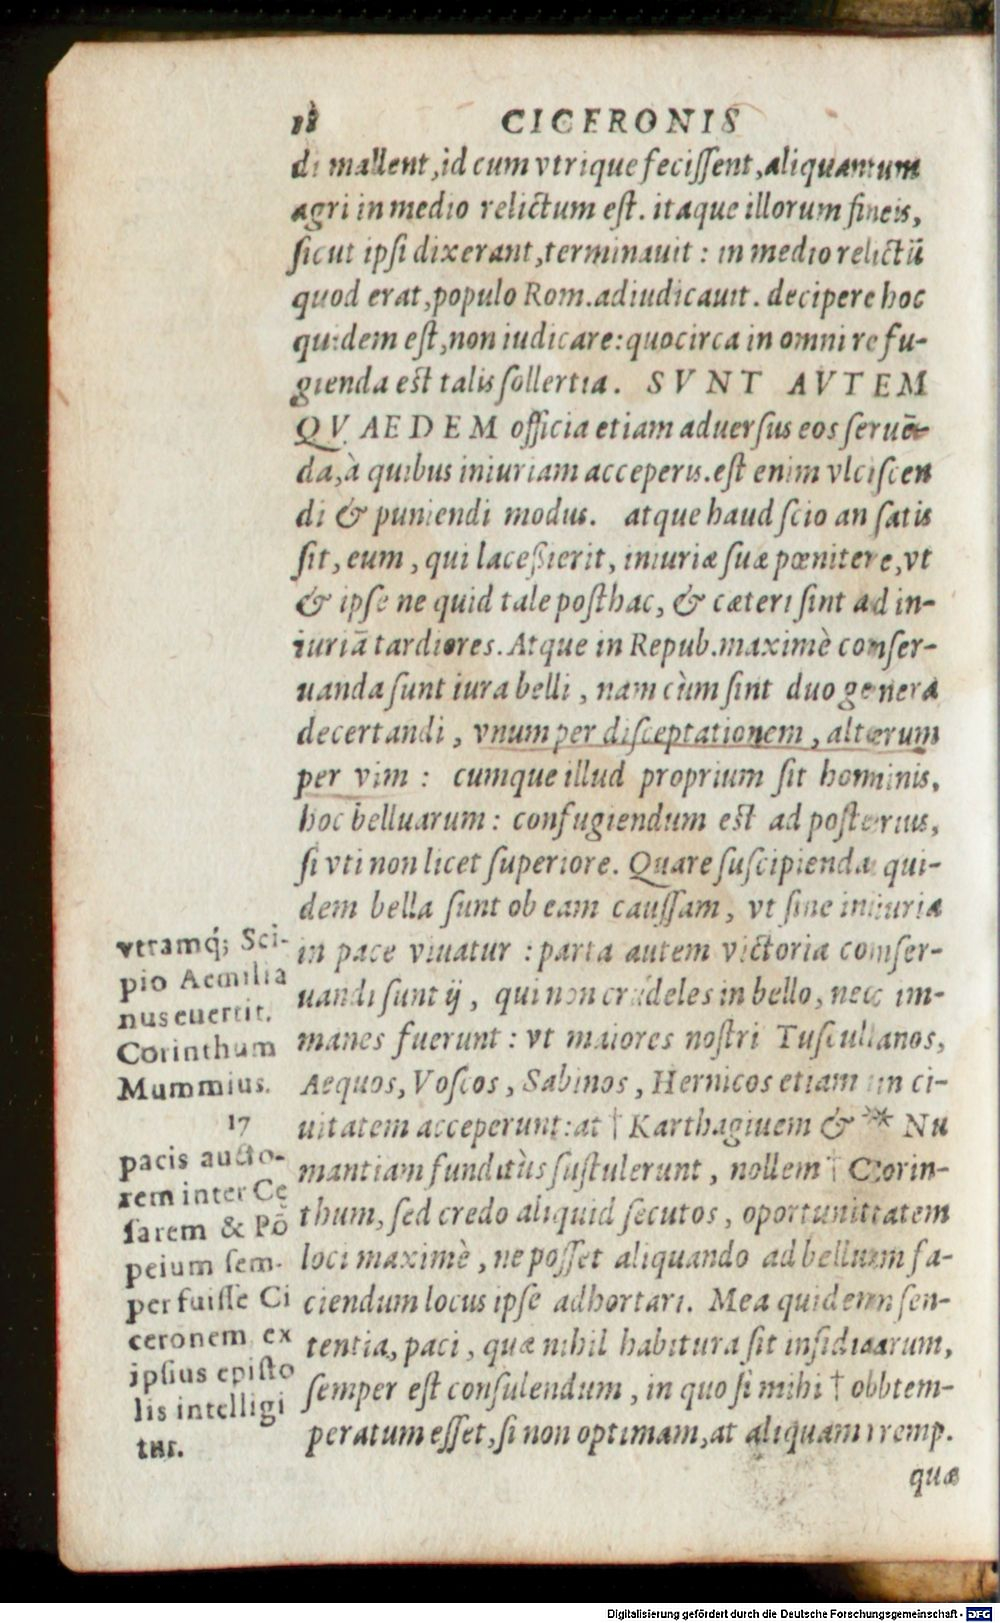 18 CICERONIS
di mallent, id cum vtrique fecissent, aliquantum
agri in medio relictum est. itaque illorum fineis,
sicut ipsi dixerant, terminauit : in medio relictū
quod erat, populo Rom. adiudicauit. decipere hoc
quidem est, non iudicare: quocirca in omni re fu-
gienda est talis sollertia. SVNT AVTEM
QVAEDEM officia etiam aduersus eos seruē-
da, à quibus iniuriam acceperis. est enim vlciscen
di & puniendi modus. atque haud scio an satis
sit, eum, qui lacessierit, iniuriæ suæ pœnitere, vt
& ipse ne quid tale posthac, & cæteri sint ad in-
iuriā tardiores. Atque in Repub. maximè conser-
uanda sunt iura belli, nam cùm sint duo genera
decertandi, vnum per disceptationem, alterum
per vim : cumque illud proprium sit hominis,
hoc belluarum : confugiendum est ad posterius,
si vti non licet superiore. Quare suscipienda qui-
dem bella sunt ob eam caussam, vt sine iniuria
in pace viuatur : parta autem victoria conser-
uandi sunt ij, qui non crudeles in bello, nec im-
manes fuerunt : vt maiores nostri Tusculanos,
Aequos, Voscos, Sabinos, Hernicos etiam in ci-
uitatem acceperunt: at † Karthaginem & ** Nu
mantiam funditùs sustulerunt, nollem † Corin-
thum, sed credo aliquid secutos, oportunitatem
loci maximè, ne posset aliquando ad bellum fa-
ciendum locus ipse adhortari. Mea quidem sen-
tentia, paci, quæ nihil habitura sit insidiarum,
semper est consulendum, in quo si mihi † obtem-
peratum esset, si non optimam, at aliquam remp.
quæ
vtramq́; Sci-
pio Aemilia
nus euertit.
Corinthum
Mummius.
17
pacis aucto-
rem inter Ce
sarem & Pō
peium sem-
per fuisse Ci
ceronem ex
ipsius episto
lis intelligi
tur.
Digitalisierung gefördert durch die Deutsche Forschungsgemeinschaft - DFG